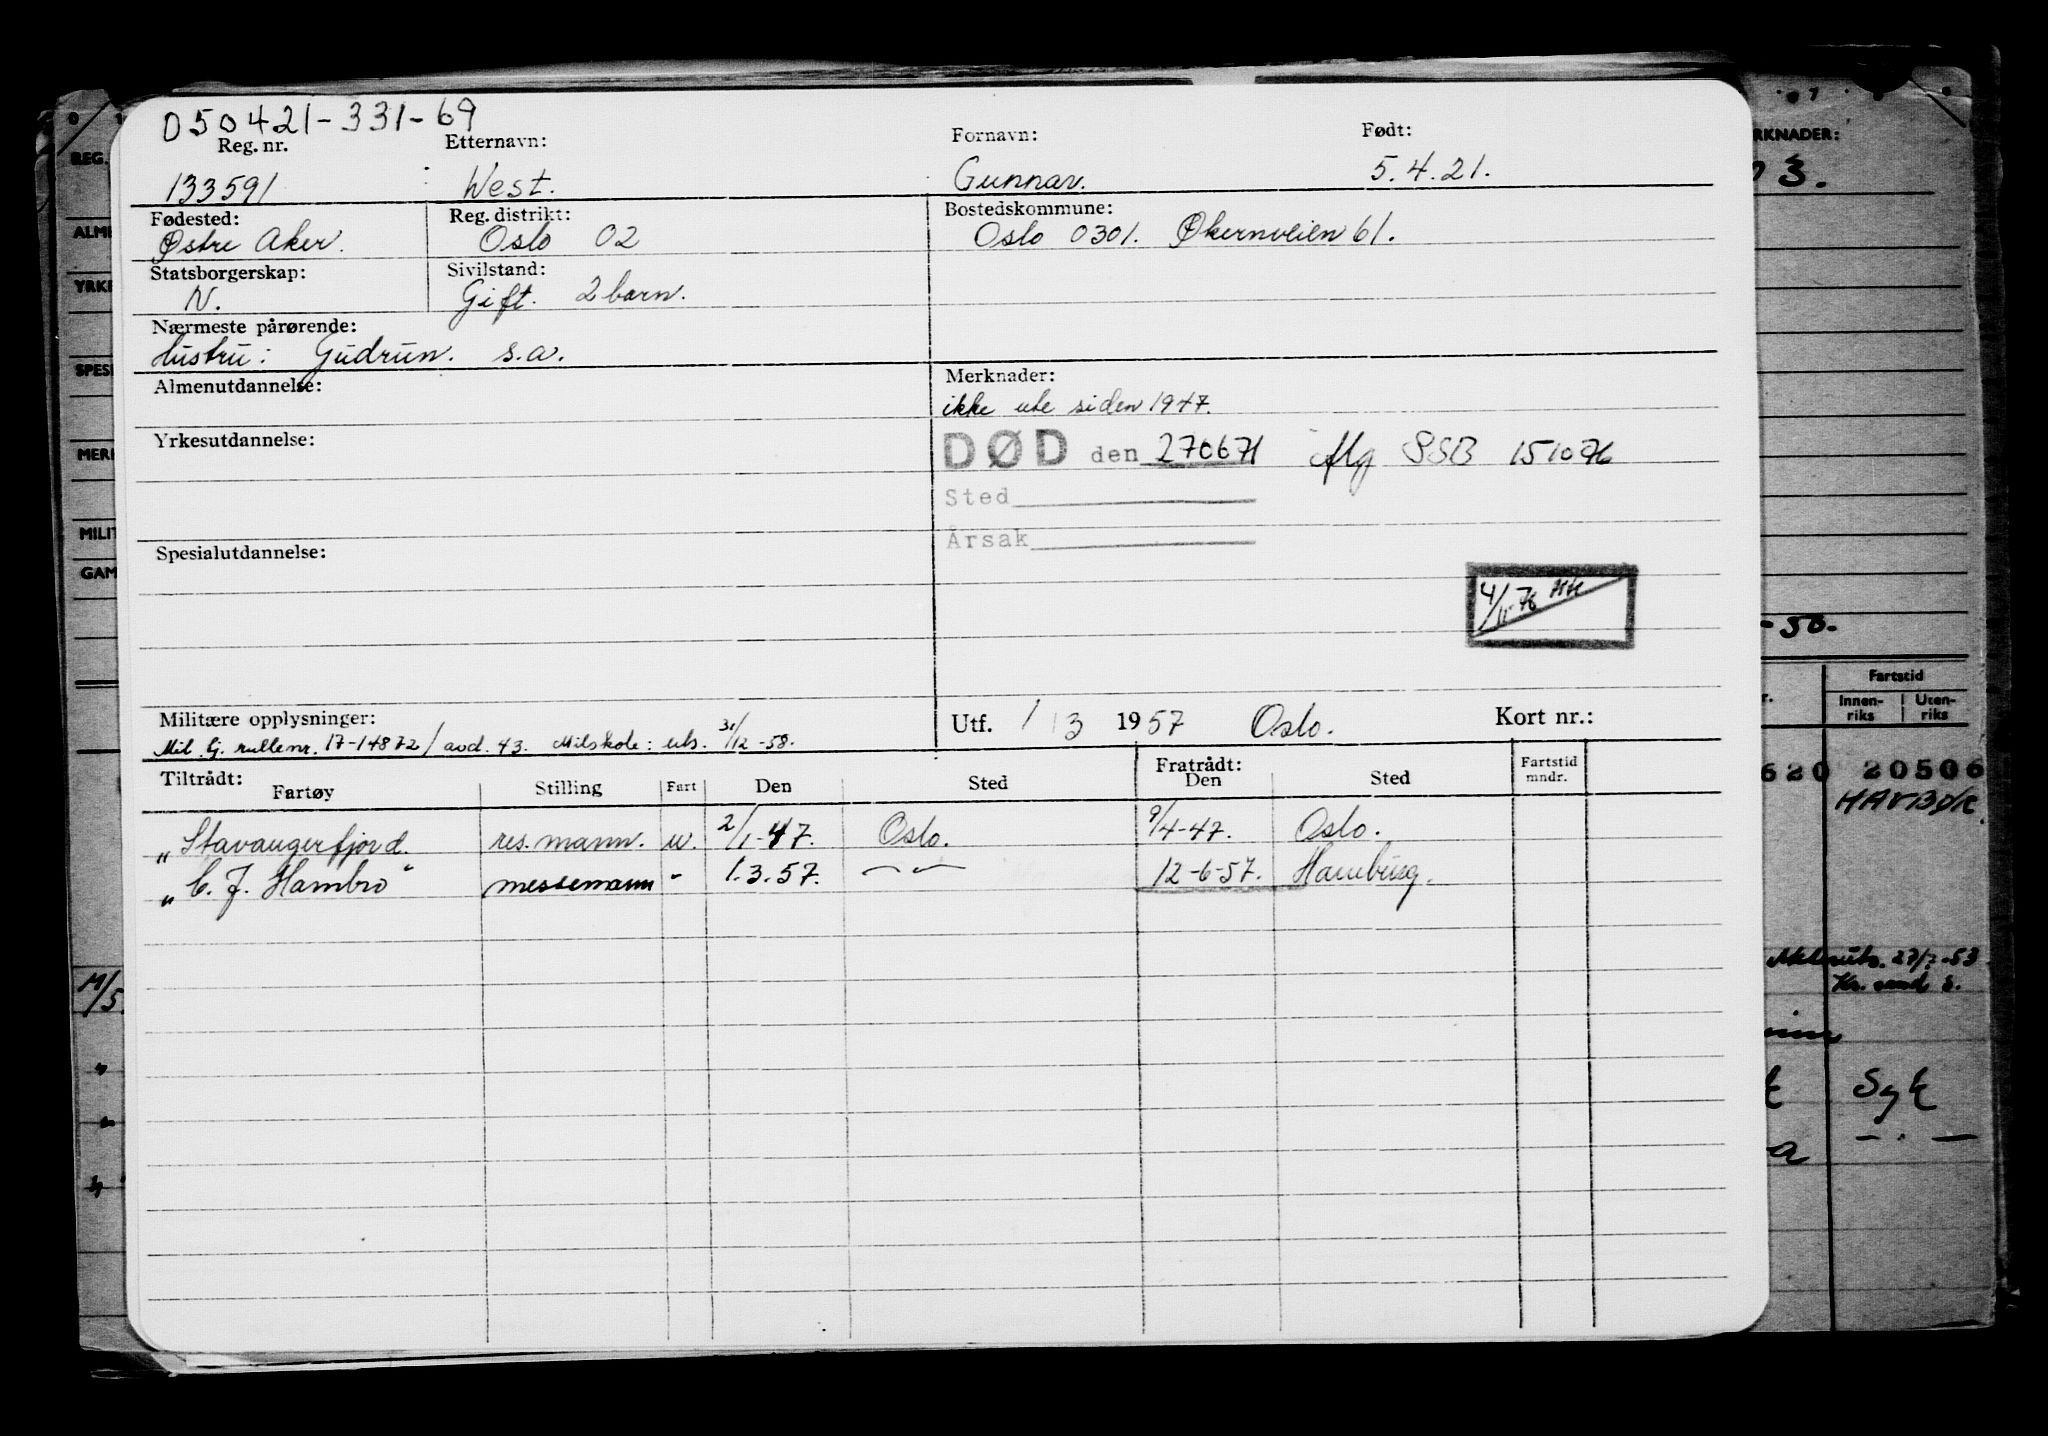 050421-331-69
Reg. nr. Etternavn: Fornavn: Født:
133591 West. Gunnar. 5.4.21.
Fødested: Reg. distrikt: Bostedskommune:
Østre Aker. Oslo 02 Oslo 0301. Økernveien 61.
Statsborgerskap: Sivilstand:
N. Gift. 2 barn.
Nærmeste pårørende:
Hustru: Gudrun. s.a.
Almenutdannelse: Merknader:
ikke ute siden 1947.
Yrkesutdannelse:
DØD den 270671 Mg SSB 151076
Sted
Årsak
Spesialutdannelse:
4/11-76
Militære opplysninger: Utf. 1 3 1957 Oslo. Kort nr.:
Mil. Gj. rullenr. 17-14872/avd. 43. Milskole: uts. 31/12-58.
Tiltrådt: Fratrådt: Fartstid
Fartøy Stilling Fart Den Sted Den Sted mndr.
"Stavangerfjord. res. mann. u. 2/1-47. Oslo. 9/4-47. Oslo.
"C. J. Hambro" messemann " 1.3.57. —"— 12-6-57. Hamburg.
REG.
ALM
YRKE
SPESI
MERK
MILIT
GAM
M/S
"
"
"
RKNADER:
3.
-50.
Fartstid
r. Innen-riks Uten-riks
620 20506
27/2-53
Kr. sand S.
Syk
a — . —